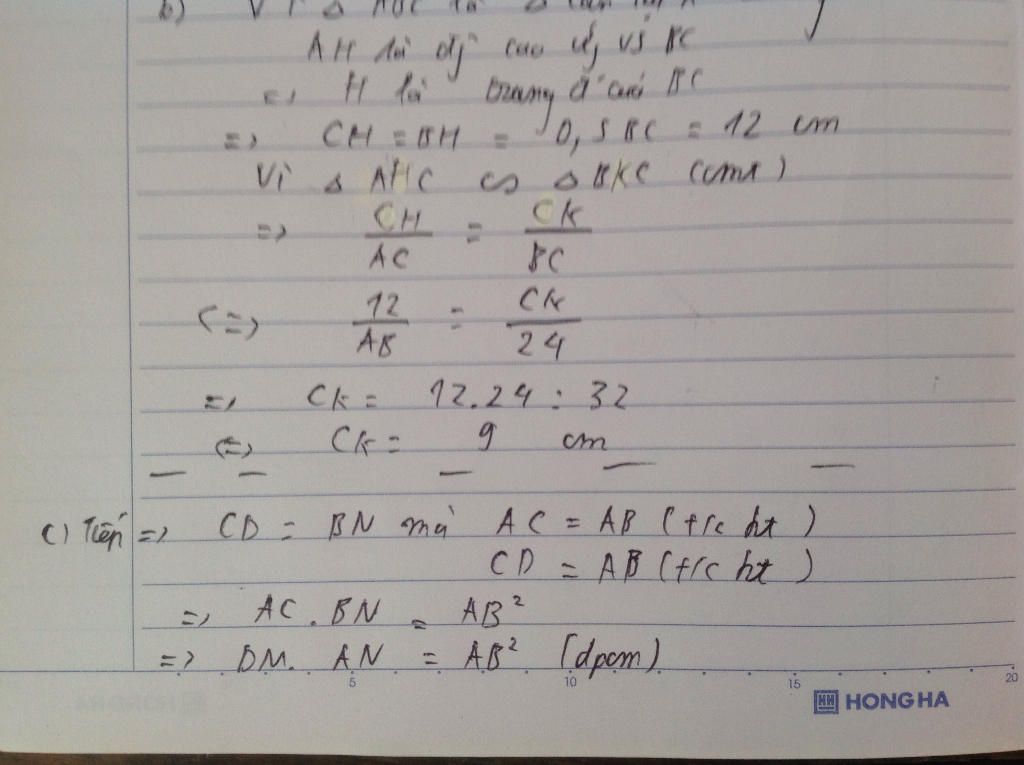 b) Vì Δ ABC là Δ cân tại A
AH là đg cao ứg vs BC
=> H là trung đ' của BC
=> CH = BH = 0,5 BC = 12 cm
Vì Δ AHC ∽ Δ BKC (cmt)
=> CH/AC = CK/BC
<=> 12/AB = CK/24
=> CK = 12.24 : 32
<=> CK = 9 cm
c) Tiếp => CD = BN mà AC = AB (t/c ht)
CD = AB (t/c ht)
=> AC . BN = AB²
=> DM. AN = AB² (dpcm)
5 10 15 20
HH HONG HA